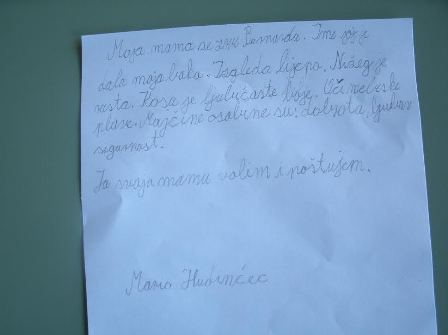 Moja mama se zove Bernarda. Ime joj je
dala moja baka. Izgleda lijepo. Nižeg je
rasta. Kosa je ljubičaste boje. Oči nebeski
plave. Majčine osobine su: dobrota, ljubav
sigurnost.
Ja svoju mamu volim i poštujem.
Mario